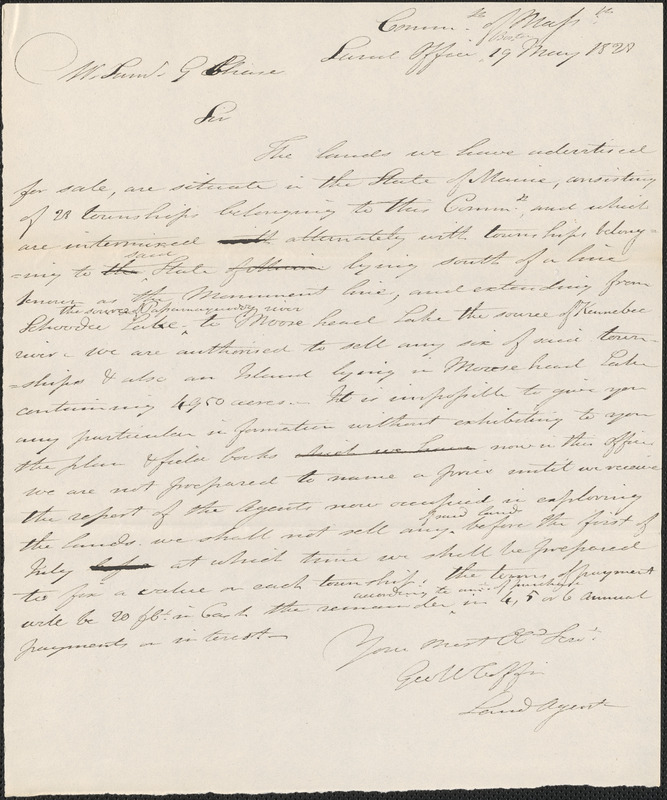 Comm.th of Mass.tts
Land Office, Boston 19 May 1828
Mr. Saml. G Chase
Sir
The lands we have advertised
for sale, are situate in the State of Maine, consisting
of 28 townships belonging to this Comm.th, and which
are intermixed alternately with townships belong-
said
-ing to the State of Maine lying south of a line
known as the Monument line, and extending from
the source of Passamaquoddy river
Schoodic Lake, to Moose head Lake the source of Kennebec
river. We are authorised to sell any six of said town-
-ships & also an Island lying in Moose head Lake
containing 4950 acres. It is impossible to give you
any particular information without exhibiting to you
the plan & field books which we have now in this office
we are not prepared to name a price until we receive
the report of the Agents now occupied in exploring
of said lands
the lands. we shall not sell any before the first of
July at which time we shall be prepared
to fix a value on each township. the terms of payment
according to amt. of purchase
will be 20 pct. in Cash the remainder, in 4, 5 or 6 annual
payments on interest.
Your most Ob. Serv.t
Geo W Coffin
Land Agent